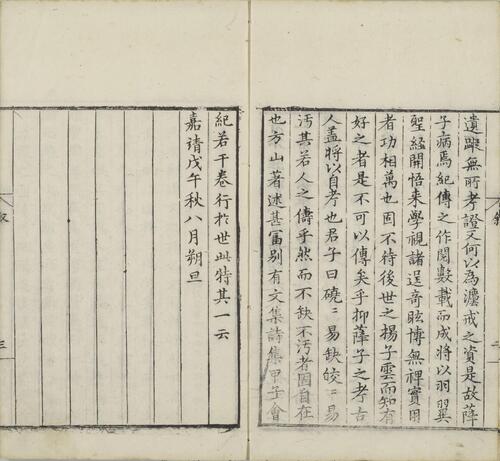 遺蹤無所考證又何以為灋戒之資是故薛
子病焉紀傳之作閱數載而成將以羽翼
聖經開悟来學視諸逞奇眩博無裨實用
者功相萬也固不待後世之楊子雲而知有
好之者是不可以傳矣乎抑薛子之考古
人盖將以自考也君子曰磽〻易缺皎〻易
汚其若人之儔乎然而不缺不汚者固自在
也方山著述甚富别有文集詩集甲子會
紀若干卷行於世此特其一云
嘉靖戊午秋八月朔旦
叙
三